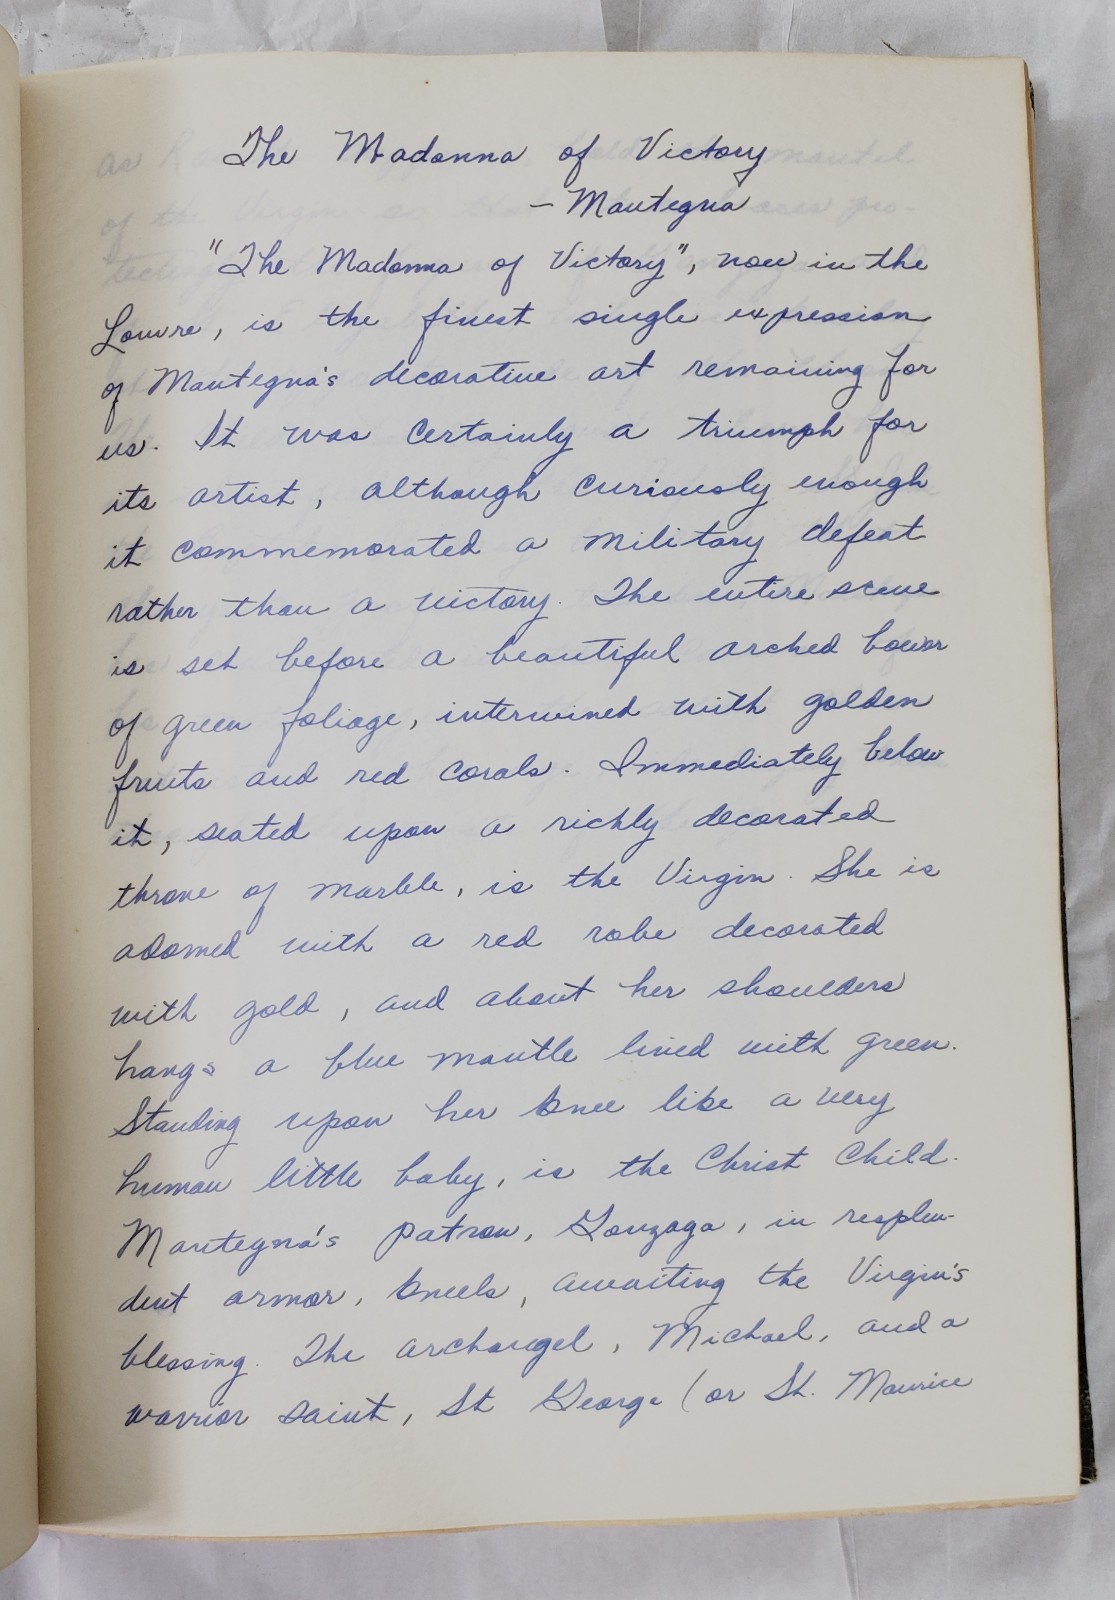 The Madonna of Victory
– Mantegna
"The Madonna of Victory", now in the
Louvre, is the finest single expression
of Mantegna's decorative art remaining for
us. It was certainly a triumph for
its artist, although curiously enough
it commemorated a military defeat
rather than a victory. The entire scene
is set before a beautiful arched bower
of green foliage, intermined with golden
fruits and red corals. Immediately below
it, seated upon a richly decorated
throne of marble, is the Virgin. She is
adorned with a red robe decorated
with gold, and about her shoulders
hangs a blue mantle lined with green.
Standing upon her knee like a very
human little baby, is the Christ Child.
Mantegna's patron, Gonzaga, in resplen-
dent armor, kneels, awaiting the Virgin's
blessing. The archangel, Michael, and a
warrior saint, St George (or St. Maurice